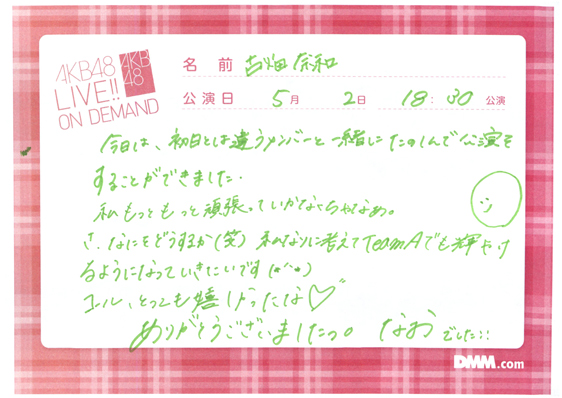 AKB48
LIVE!!
ON DEMAND
AKB
48
名前 古畑奈和
公演日 5月 2日 18:30 公演
今日は、初日とは違うメンバーと一緒にたのしんで公演を
することができました.
私もっともっと頑張っていかなくちゃなぁ。
さ、なにをどうするか(笑) 私なりに考えてTeamAでも輝やけ
るようになっていきたいです(*^^*)
コール、とっても嬉しかったな♡
ありがとうございましたっ。 なおでした!!
DMM.com